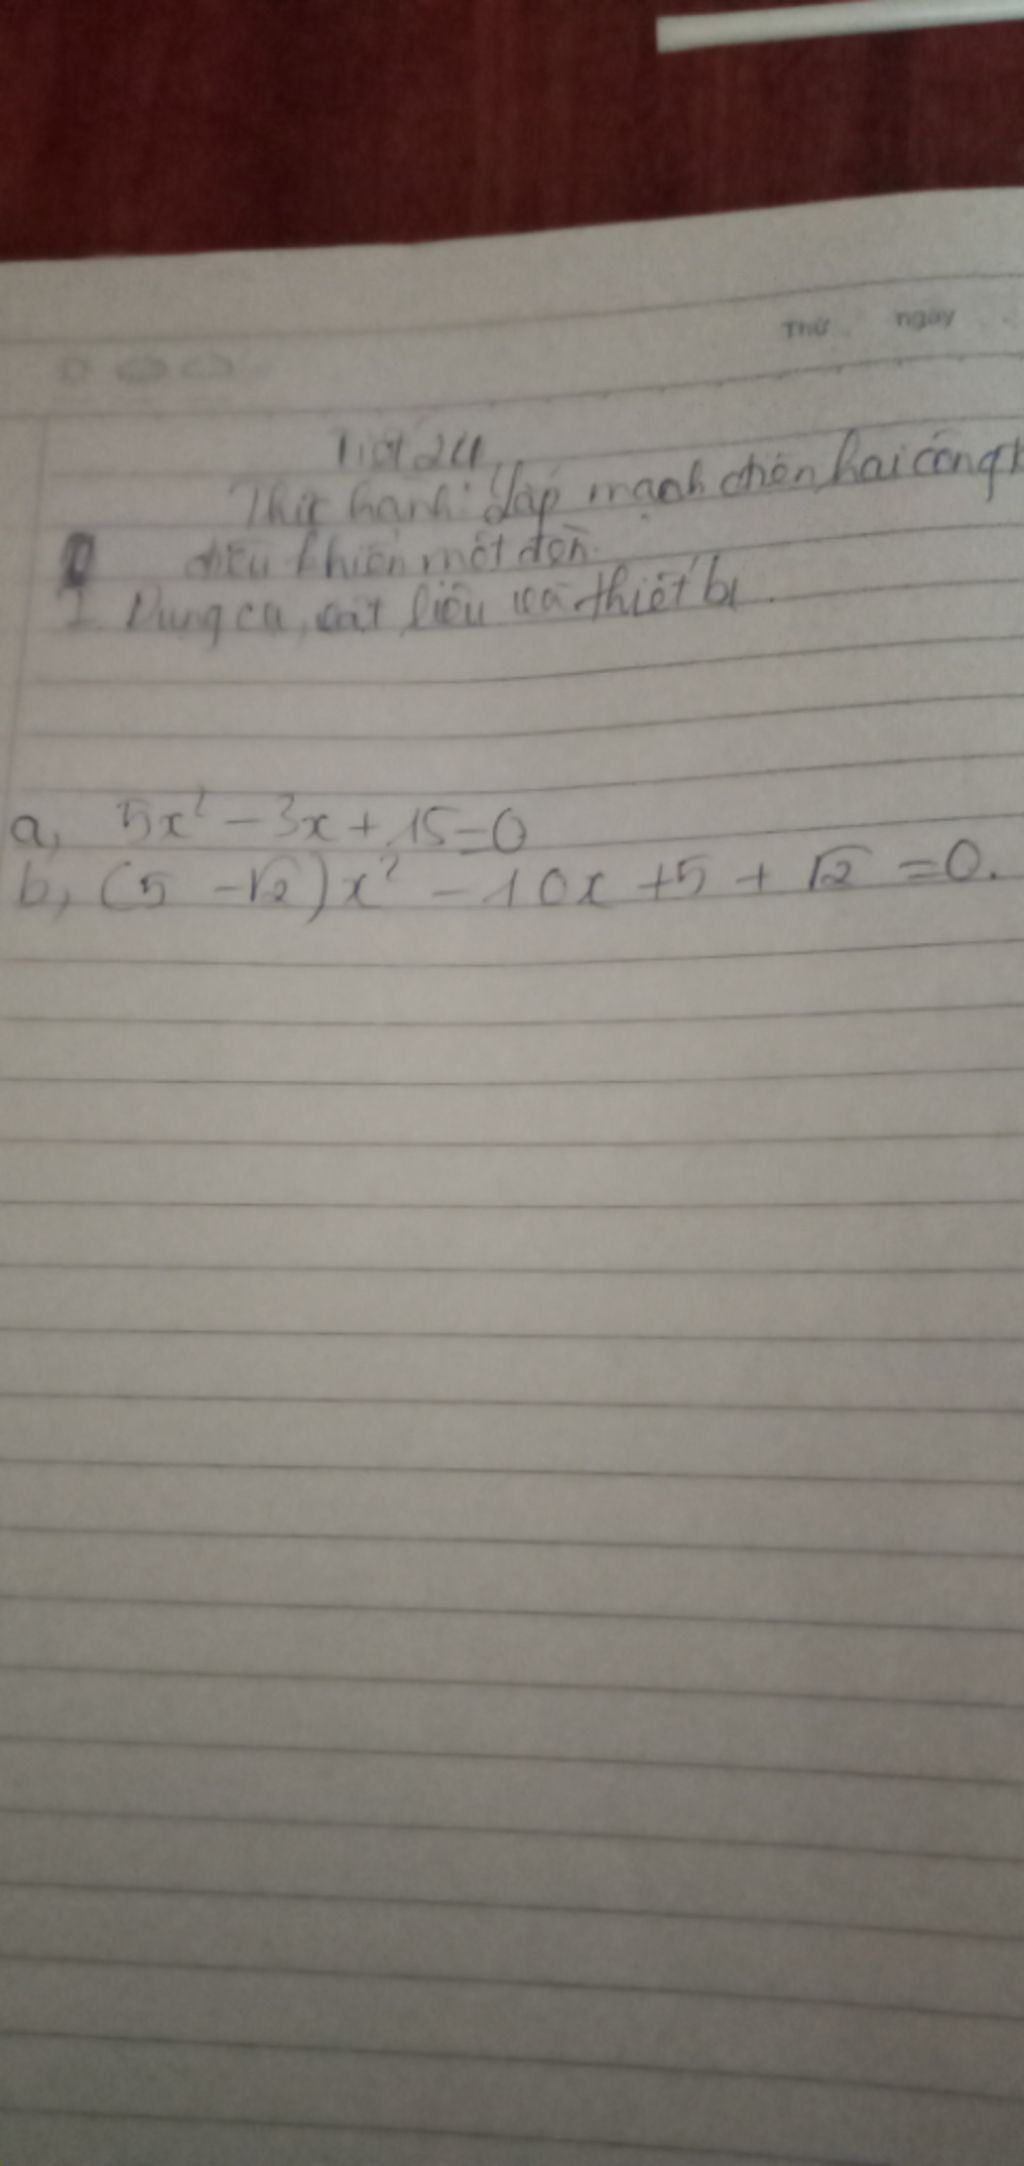 Thứ ngày
Tiết 24
Thực hành: Lắp mạch điện hai công
điều khiển một đèn.
I Dụng cụ, vật liệu và thiết bị.
a, 5x² - 3x + 15 = 0
b, (5 - √2)x² - 10x + 5 + √2 = 0.